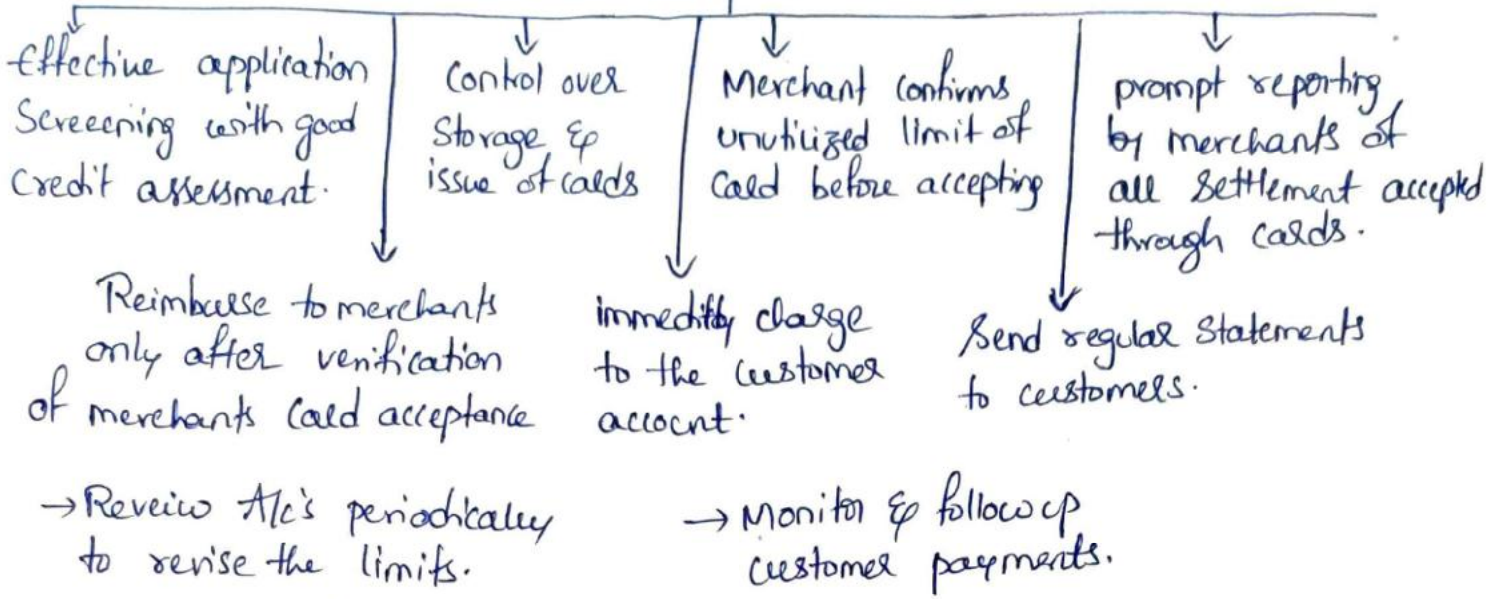 Effective application
Screecning with good
Credit assessment.
Control over
Storage &
issue of cards
Merchant confirms
unutilized limit of
Card before accepting
prompt reporting
by merchants of
all Settlement accepted
through cards.
Reimburse to merchants
only after verification
of merchants Card acceptance
immeditly charge
to the customer
account.
Send regular Statements
to customers.
→ Reveiw A/c's periodically
to revise the limits.
→ Monitor & followup
customer payments.